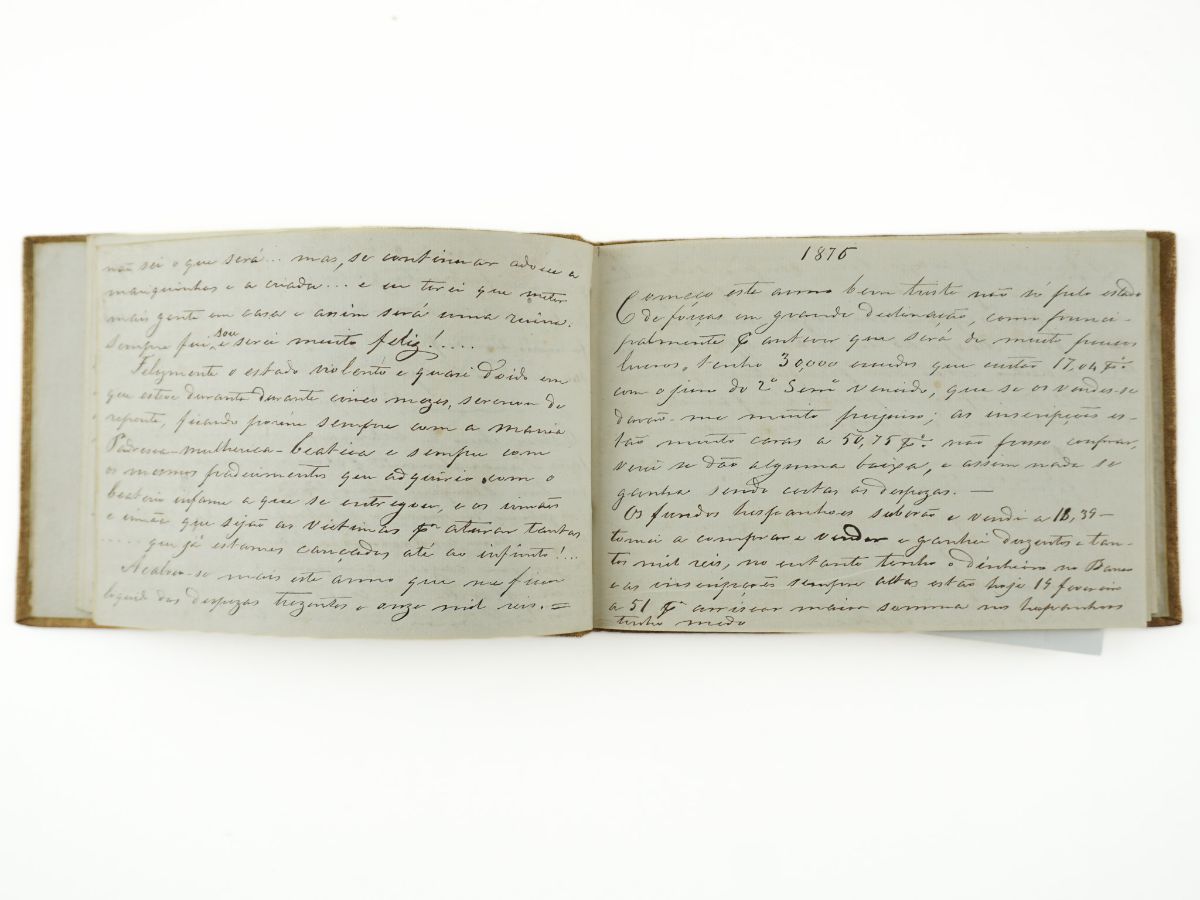 não sei o que será... mas, se continuar adoece a
mariquinhas e a criada... e eu terei que metter
mais gente em casa e assim será uma ruina.
Sempre fui, e sou serei muito feliz!....
Felizmente o estado violento e quasi doido em
que esteve durante durante cinco mezes, serenou de
repente, ficando porém sempre com a mania
Padresca-mulherica-beatica e sempre com
os mesmos padecimentos que adquirio com o
beaterio infame a que se entregou, e os irmãos
e irmãa que sejão as victimas pª aturar tantas
..... que já estamos cançados até ao infinto!...
Acabou-se mais este anno que me ficou
liquido das despezas trezentos e onze mil reis. =
1876
Começo este anno bem triste não só pelo estado
de forças em grande declinação, como princi-
palmente pª antever que será de muito poucos
lucros, tenho 30,000 escudos que estão 17,04 pª
com o juro do 2º Semᵉ vencido, que se os vendesse
darão-me muito prejuiso; as inscripções es-
tão muito caras a 50,75 pª não posso comprar,
verei se dão alguma baixa, e assim nada se
ganha sendo certas as despezas. —
Os fundos hespanhoes subirão e vendi a 18,39 —
tornei a comprar e vender e ganhei duzentos e tan-
tos mil reis, no entanto tenho o dinheiro no Banco
e as inscripções sempre altas estão hoje 19 fevereiro
a 51 pª arriscar maior somma nos hespanhoes
tenho medo